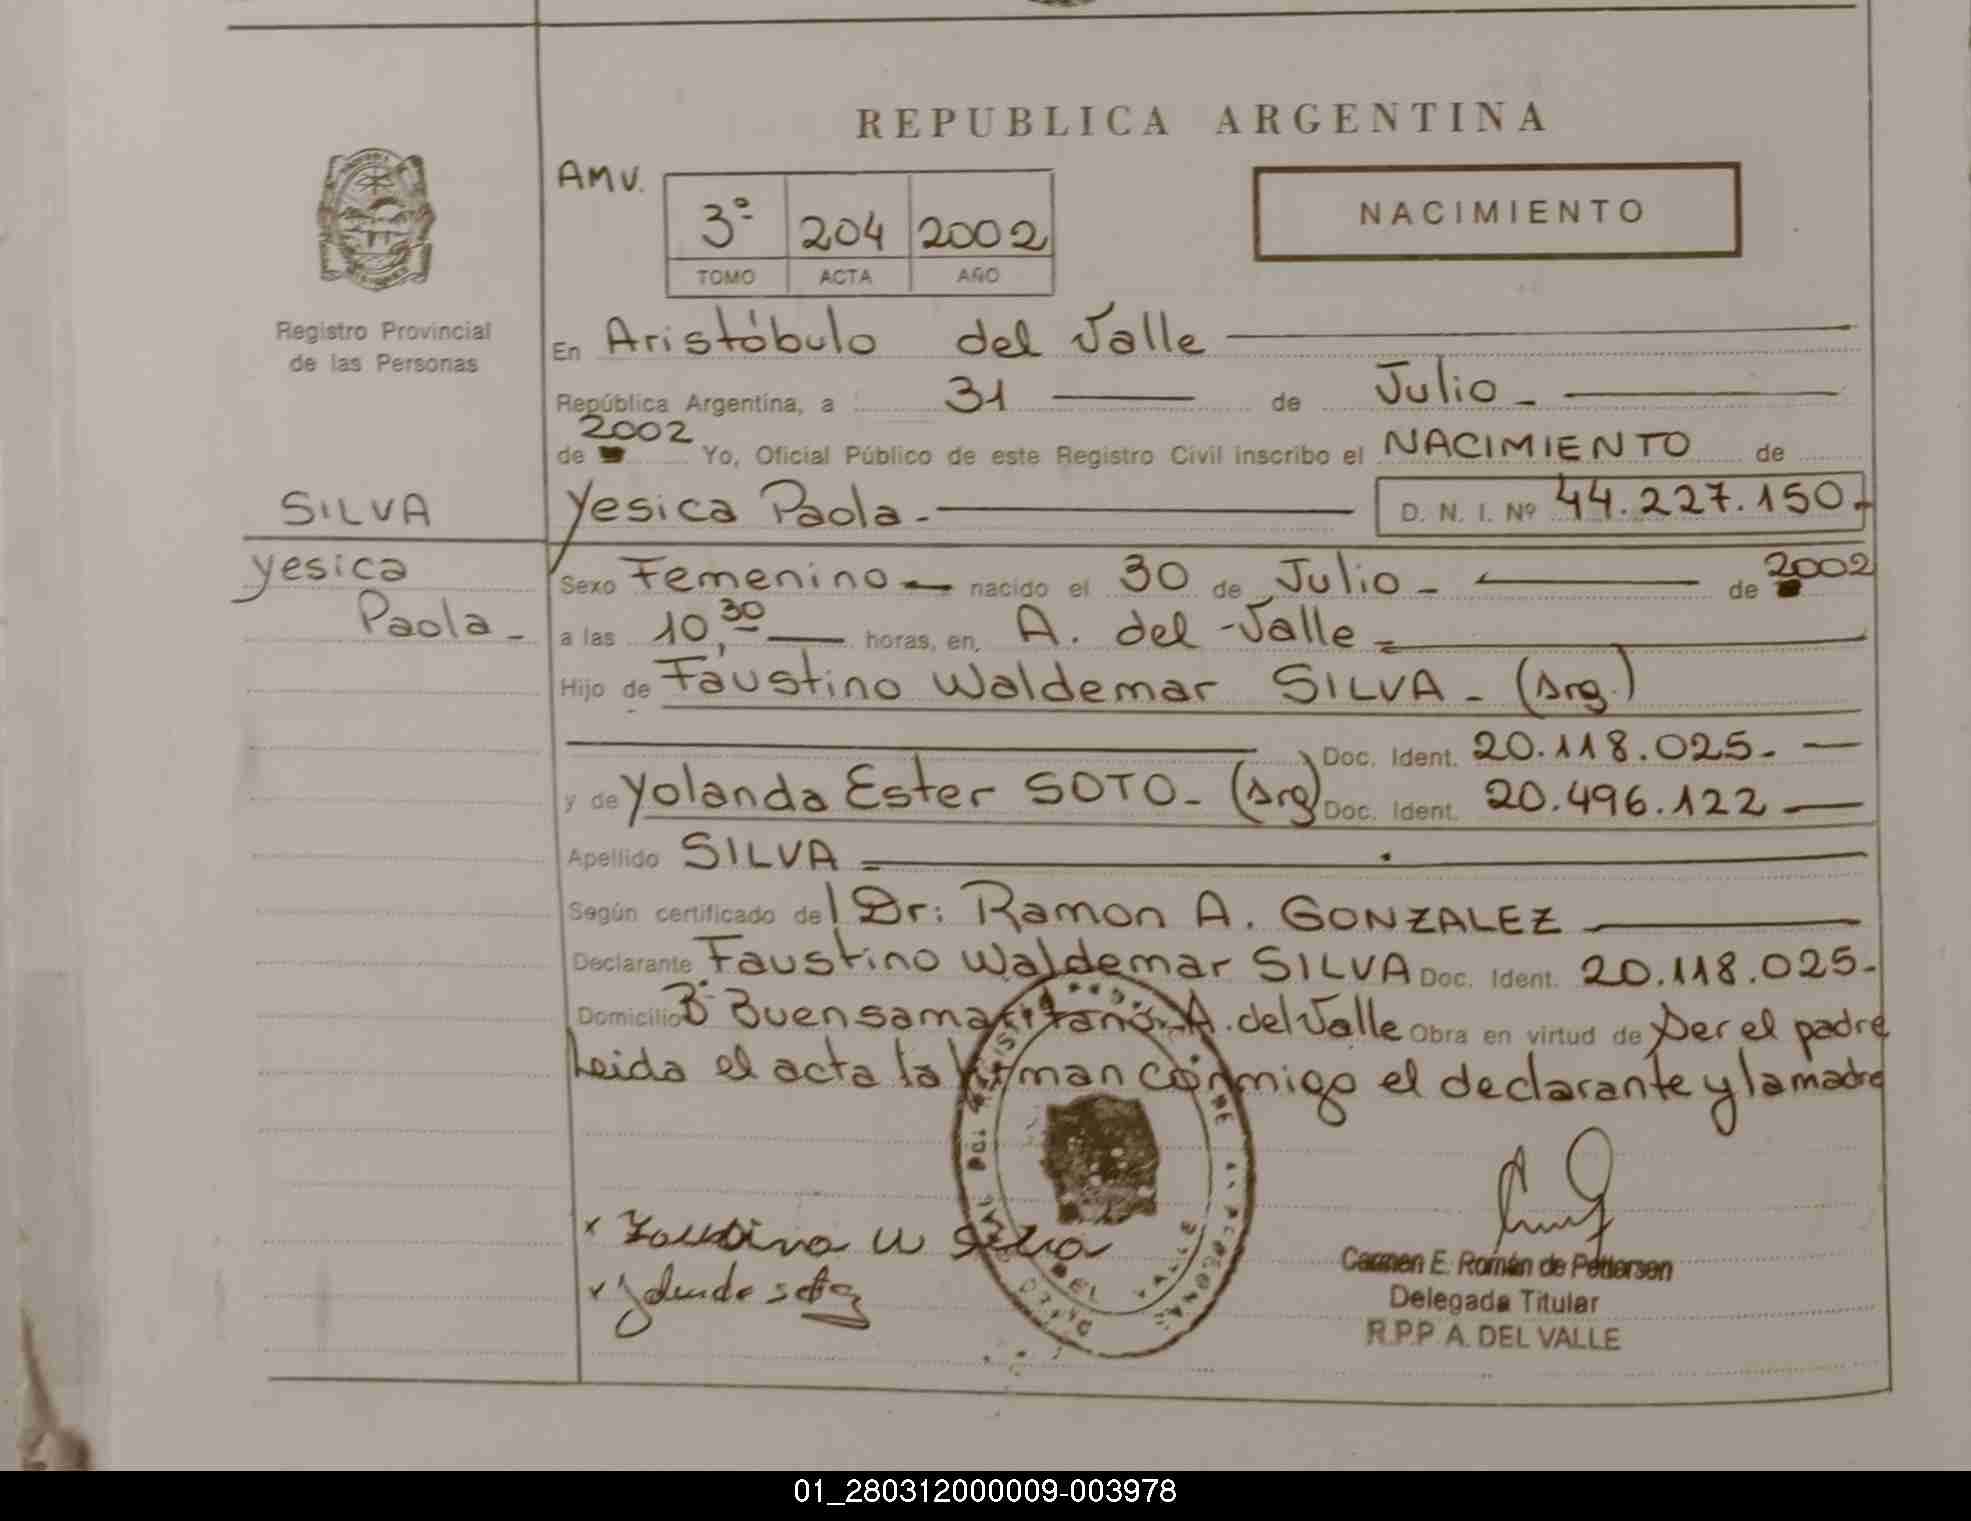 REPUBLICA ARGENTINA
AMV.
3º 204 2002
TOMO ACTA AÑO
NACIMIENTO
Registro Provincial
de las Personas
SILVA
Yesica
Paola -
En Aristóbulo del Valle
República Argentina, a 31 de Julio -
2002
de Yo, Oficial Público de este Registro Civil inscribo el NACIMIENTO de
Yesica Paola - D. N. I. Nº 44.227.150 -
Sexo Femenino - nacido el 30 de Julio - de 2002
a las 10,30 horas, en, A. del Valle -
Hijo de Faustino Waldemar SILVA - (Arg.)
Doc. Ident. 20.118.025 -
y de Yolanda Ester SOTO - (Arg) Doc. Ident. 20.496.122
Apellido SILVA
Según certificado del Dr: Ramon A. GONZALEZ
Declarante Faustino Waldemar SILVA Doc. Ident. 20.118.025 -
Domicilio Bº Buen samaritano - A. del Valle Obra en virtud de ser el padre
Leida el acta la firman conmigo el declarante y la madre
x Faustino W Silva
x Yolanda soto
DEL VALLE
Carmen E. Román de Pettersen
Delegada Titular
R.P.P A. DEL VALLE
01_280312000009-003978